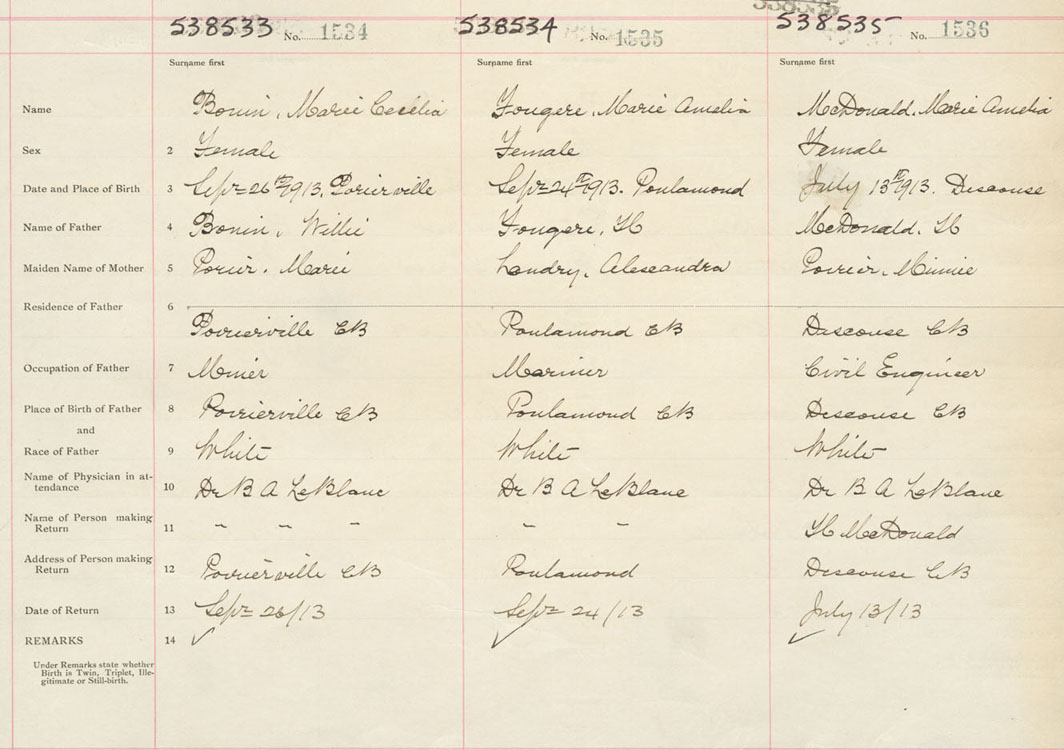 538533 No. 1534 538534 No. 1535 538535 No. 1536
Surname first Surname first Surname first
Name Bonin, Marie Cecelia Fougere, Marie Amelia McDonald, Marie Amelia
Sex 2 Female Female Female
Date and Place of Birth 3 Sept 26th 1913. Porierville Sept 24th 1913. Poulamond July 13th 1913. Descouse
Name of Father 4 Bonin, Willie Fougere, H McDonald, H
Maiden Name of Mother 5 Porier, Marie Landry, Alexandra Poirier, Minnie
Residence of Father 6
Poirierville CB Poulamond CB Descouse CB
Occupation of Father 7 Miner Mariner Civil Engineer
Place of Birth of Father 8 Poirierville CB Poulamond CB Descouse CB
and
Race of Father 9 White White White
Name of Physician in at-
tendance 10 Dr B A LeBlanc Dr B A LeBlanc Dr B A LeBlanc
Name of Person making
Return 11 " " " " " H McDonald
Address of Person making
Return 12 Poirierville CB Poulamond Descouse CB
Date of Return 13 Sept 26/13 Sept 24/13 July 13/13
REMARKS 14 ✓ ✓ ✓
Under Remarks state whether
Birth is Twin, Triplet, Ille-
gitimate or Still-birth.